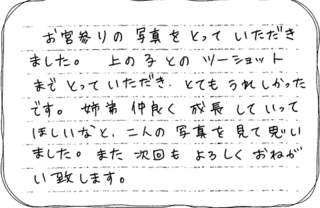 お宮参りの写真をとっていただき
ました。 上の子とのツーショット
までとっていただき、とてもうれしかった
です。 姉弟仲良く成長していって
ほしいなと、二人の写真を見て思い
ました。また次回もよろしくおねが
い致します。